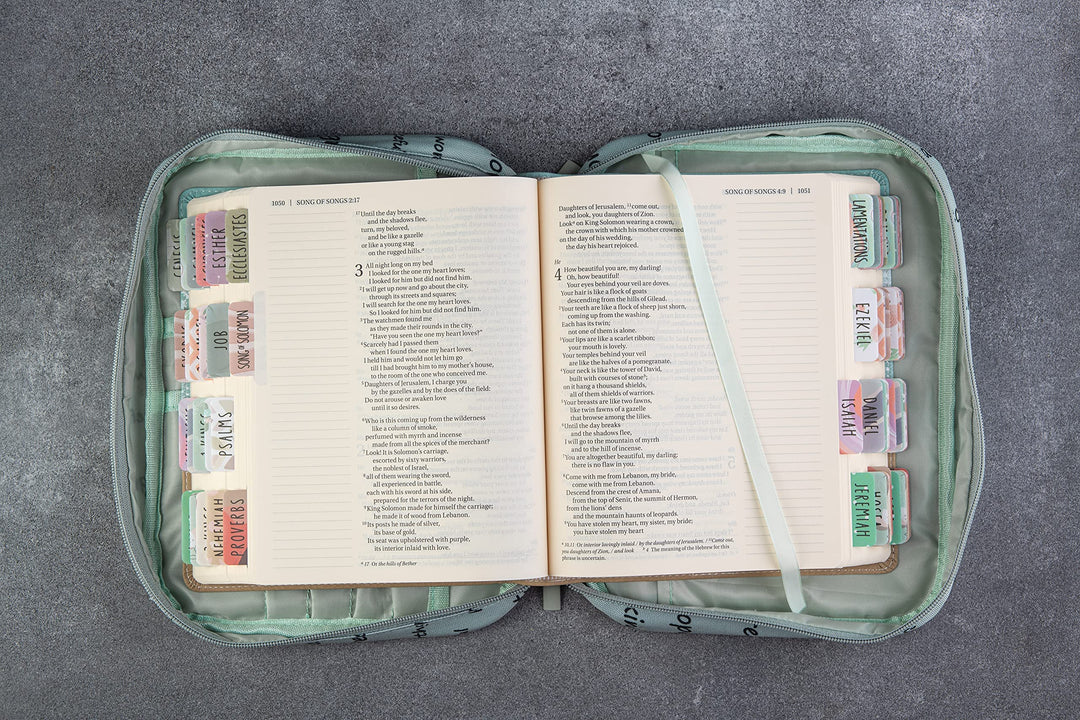 1050 | SONG OF SONGS 2:17
17Until the day breaks
and the shadows flee,
turn, my beloved,
and be like a gazelle
or like a young stag
on the rugged hills.a
3 All night long on my bed
I looked for the one my heart loves;
I looked for him but did not find him.
2I will get up now and go about the city,
through its streets and squares;
I will search for the one my heart loves.
So I looked for him but did not find him.
3The watchmen found me
as they made their rounds in the city.
"Have you seen the one my heart loves?"
4Scarcely had I passed them
when I found the one my heart loves.
I held him and would not let him go
till I had brought him to my mother's house,
to the room of the one who conceived me.
5Daughters of Jerusalem, I charge you
by the gazelles and by the does of the field:
Do not arouse or awaken love
until it so desires.
6Who is this coming up from the wilderness
like a column of smoke,
perfumed with myrrh and incense
made from all the spices of the merchant?
7Look! It is Solomon's carriage,
escorted by sixty warriors,
the noblest of Israel,
8all of them wearing the sword,
all experienced in battle,
each with his sword at his side,
prepared for the terrors of the night.
9King Solomon made for himself the carriage;
he made it of wood from Lebanon.
10Its posts he made of silver,
its base of gold.
Its seat was upholstered with purple,
its interior inlaid with love.
a 17 Or the hills of Bether
SONG OF SONGS 4:9 | 1051
Daughters of Jerusalem, 11come out,
and look, you daughters of Zion.
Look on King Solomon wearing a crown,
the crown with which his mother crowned
on the day of his wedding,
the day his heart rejoiced.
He
4 How beautiful you are, my darling!
Oh, how beautiful!
Your eyes behind your veil are doves.
Your hair is like a flock of goats
descending from the hills of Gilead.
2Your teeth are like a flock of sheep just shorn,
coming up from the washing.
Each has its twin;
not one of them is alone.
3Your lips are like a scarlet ribbon;
your mouth is lovely.
Your temples behind your veil
are like the halves of a pomegranate.
4Your neck is like the tower of David,
built with courses of stone;
on it hang a thousand shields,
all of them shields of warriors.
5Your breasts are like two fawns,
like twin fawns of a gazelle
that browse among the lilies.
6Until the day breaks
and the shadows flee,
I will go to the mountain of myrrh
and to the hill of incense.
7You are altogether beautiful, my darling;
there is no flaw in you.
8Come with me from Lebanon, my bride,
come with me from Lebanon.
Descend from the crest of Amana,
from the top of Senir, the summit of Hermon,
from the lions' dens
and the mountain haunts of leopards.
9You have stolen my heart, my sister, my bride;
you have stolen my heart
a 10,11 Or interior lovingly inlaid / by the daughters of Jerusalem. / 11Come out,
you daughters of Zion, / and look b 4 The meaning of the Hebrew for this
phrase is uncertain.
GENESIS
ESTHER
ECCLESIASTES
JOB
SONG OF SOLOMON
PSALMS
NEHEMIAH
PROVERBS
LAMENTATIONS
EZEKIEL
ISAIAH
DANIEL
JEREMIAH
HOSEA